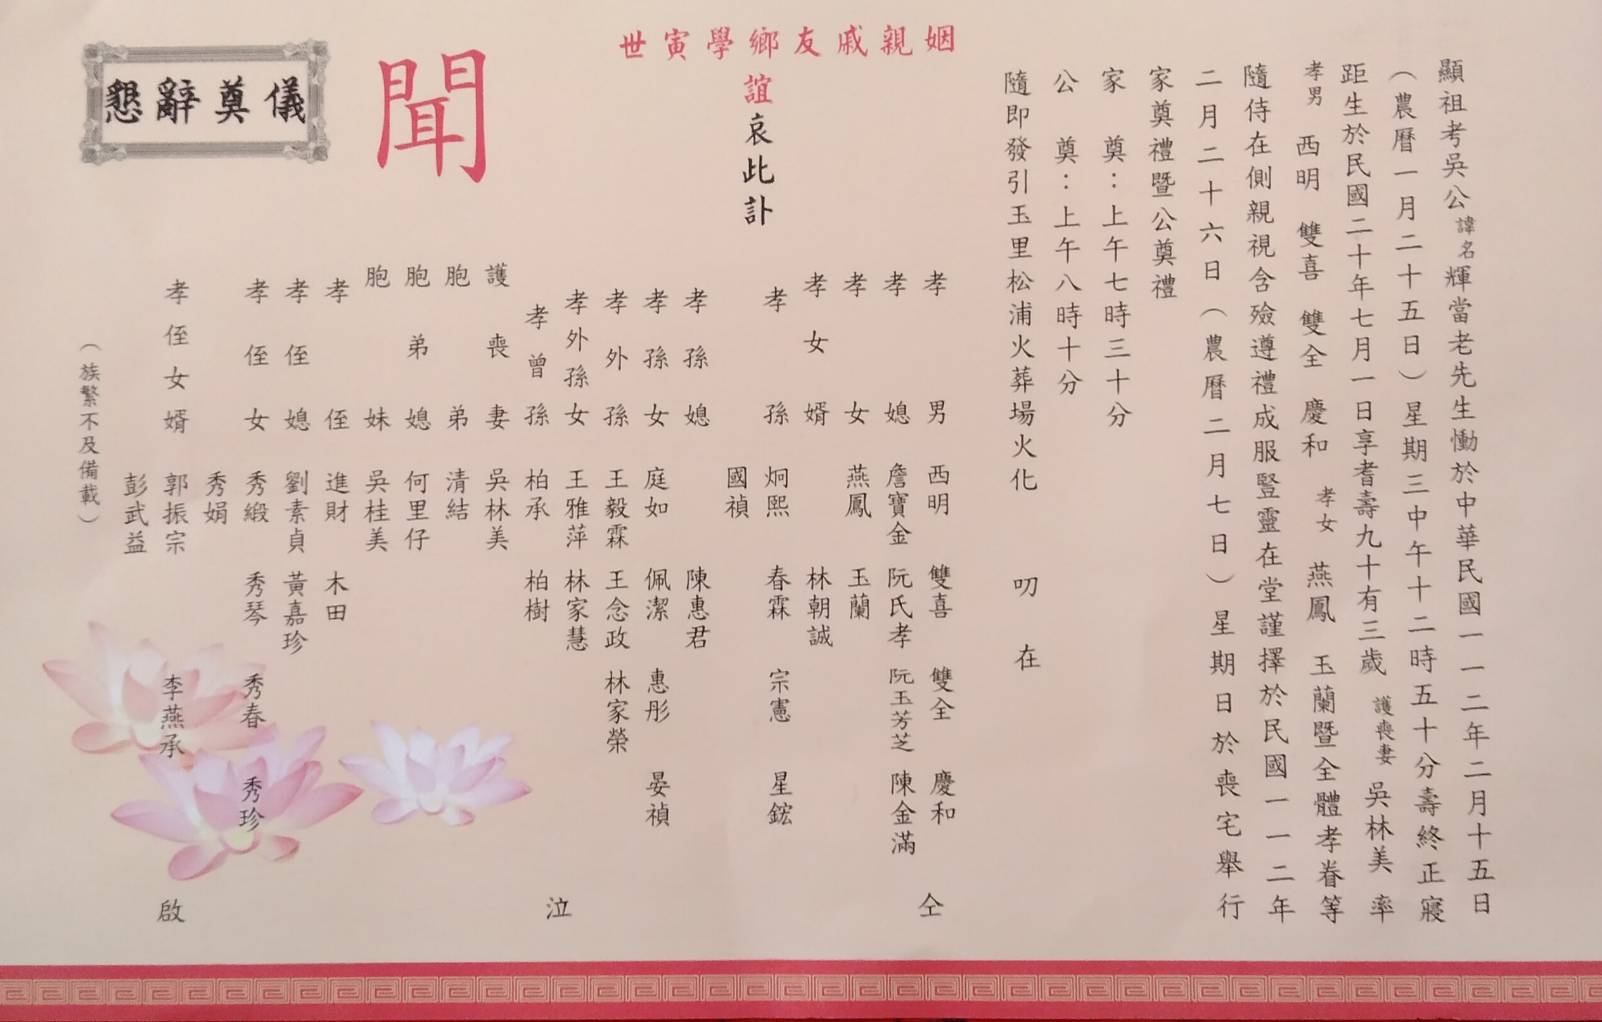 顯祖考吳公諱名輝當老先生慟於中華民國一一二年二月十五日
（農曆一月二十五日）星期三中午十二時五十分壽終正寢
距生於民國二十年七月一日享耆壽九十有三歲 護喪妻 吳林美 率
孝男 西明 雙喜 雙全 慶和 孝女 燕鳳 玉蘭暨全體孝眷等
隨侍在側親視含殮遵禮成服豎靈在堂謹擇於民國一一二年
二月二十六日（農曆二月七日）星期日於喪宅舉行
家奠禮暨公奠禮
家 奠：上午七時三十分
公 奠：上午八時十分
隨即發引玉里松浦火葬場火化 叨 在
姻親戚友鄉學寅世
誼哀此訃
聞
懇辭奠儀
孝男 西明 雙喜 雙全 慶和 仝
孝媳 詹寶金 阮氏孝 阮玉芳芝 陳金滿
孝女 燕鳳 玉蘭
孝女婿 林朝誠
孝孫 炯熙 春霖 宗憲 星鋐
國禎
孝孫媳 陳惠君
孝孫女 庭如 佩潔 惠彤 晏禎
孝外孫 王毅霖 王念政 林家榮
孝外孫女 王雅萍 林家慧 泣
孝曾孫 柏承 柏樹
護喪妻 吳林美
胞弟 清結
胞弟媳 何里仔
胞妹 吳桂美
孝侄 進財 木田
孝侄媳 劉素貞 黃嘉珍
孝侄女 秀緞 秀琴 秀春 秀珍
秀娟
孝侄女婿 郭振宗 李燕承 啟
彭武益
（族繁不及備載）